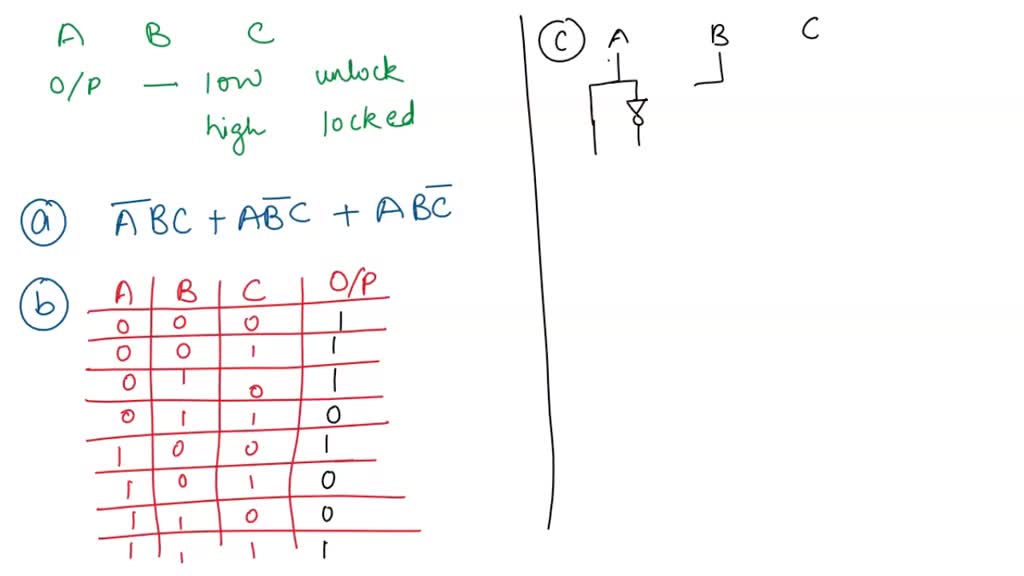 A B C
O/P — low unlock
high locked
(a) A̅BC + AB̅C + ABC̅
(b)
A B C O/P
0 0 0 1
0 0 1 1
0 1 0 1
0 1 1 0
1 0 0 1
1 0 1 0
1 1 0 0
1 1 1 1
(c) A B C